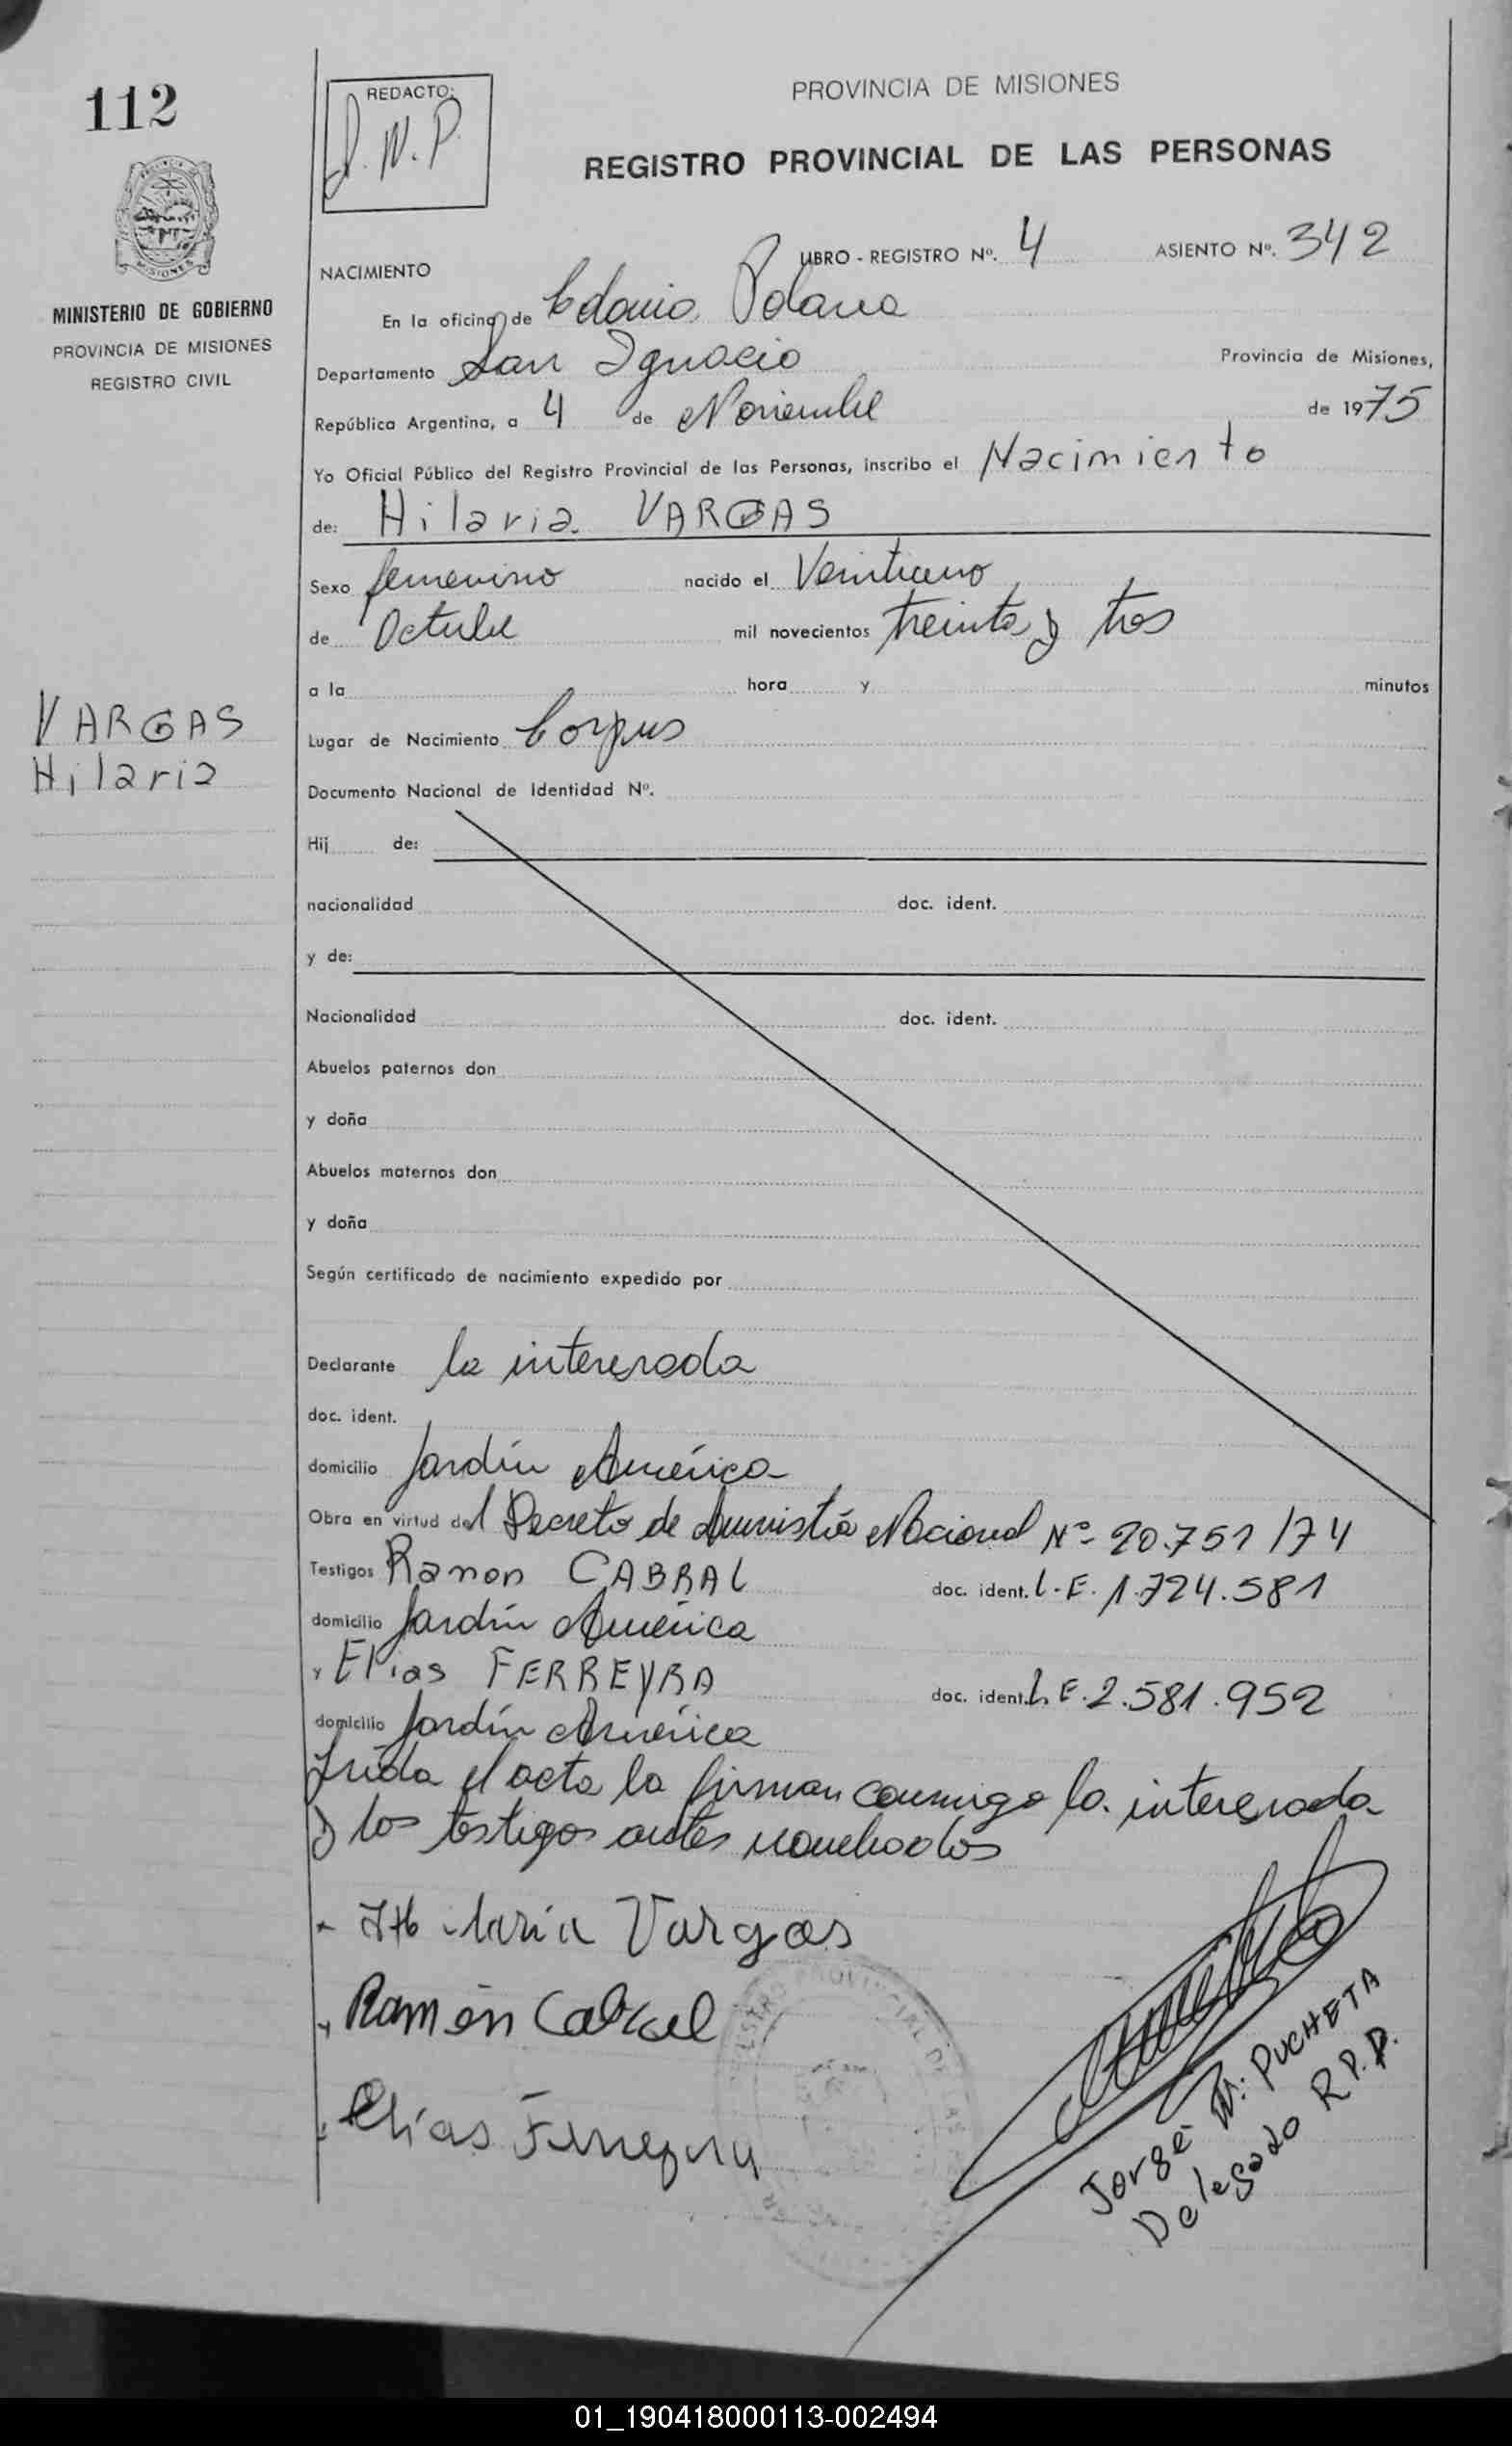 112
REDACTO:
J. N. P.
PROVINCIA DE MISIONES
REGISTRO PROVINCIAL DE LAS PERSONAS
MISIONES
MINISTERIO DE GOBIERNO
PROVINCIA DE MISIONES
REGISTRO CIVIL
LIBRO - REGISTRO Nº. 4 ASIENTO Nº. 342
NACIMIENTO
En la oficina de Colonia Polana
Departamento San Ignacio Provincia de Misiones,
República Argentina, a 4 de Noviembre de 1975
Yo Oficial Público del Registro Provincial de las Personas, inscribo el Nacimiento
de: Hilaria VARGAS
Sexo femenino nacido el Veintiuno
de Octubre mil novecientos treinta y tres
a la hora y minutos
VARGAS
Hilaria
Lugar de Nacimiento Corpus
Documento Nacional de Identidad Nº.
Hij de:
nacionalidad doc. ident.
y de:
Nacionalidad doc. ident.
Abuelos paternos don
y doña
Abuelos maternos don
y doña
Según certificado de nacimiento expedido por
Declarante la interesada
doc. ident.
domicilio Jardín América
Obra en virtud del Decreto de Amnistía Nacional Nº 20.751/74
Testigos Ramon CABRAL doc. ident. L.E. 1.724.581
domicilio Jardín América
y Elias FERREYRA doc. ident. L.E. 2.581.952
domicilio Jardín América
Leída el acta la firman conmigo la interesada
y los testigos antes nombrados
Hilaria Vargas
Ramón Cabral
Elías Ferreyra
Jorge N. PUCHETA
Delegado R.P.P.
01_190418000113-002494